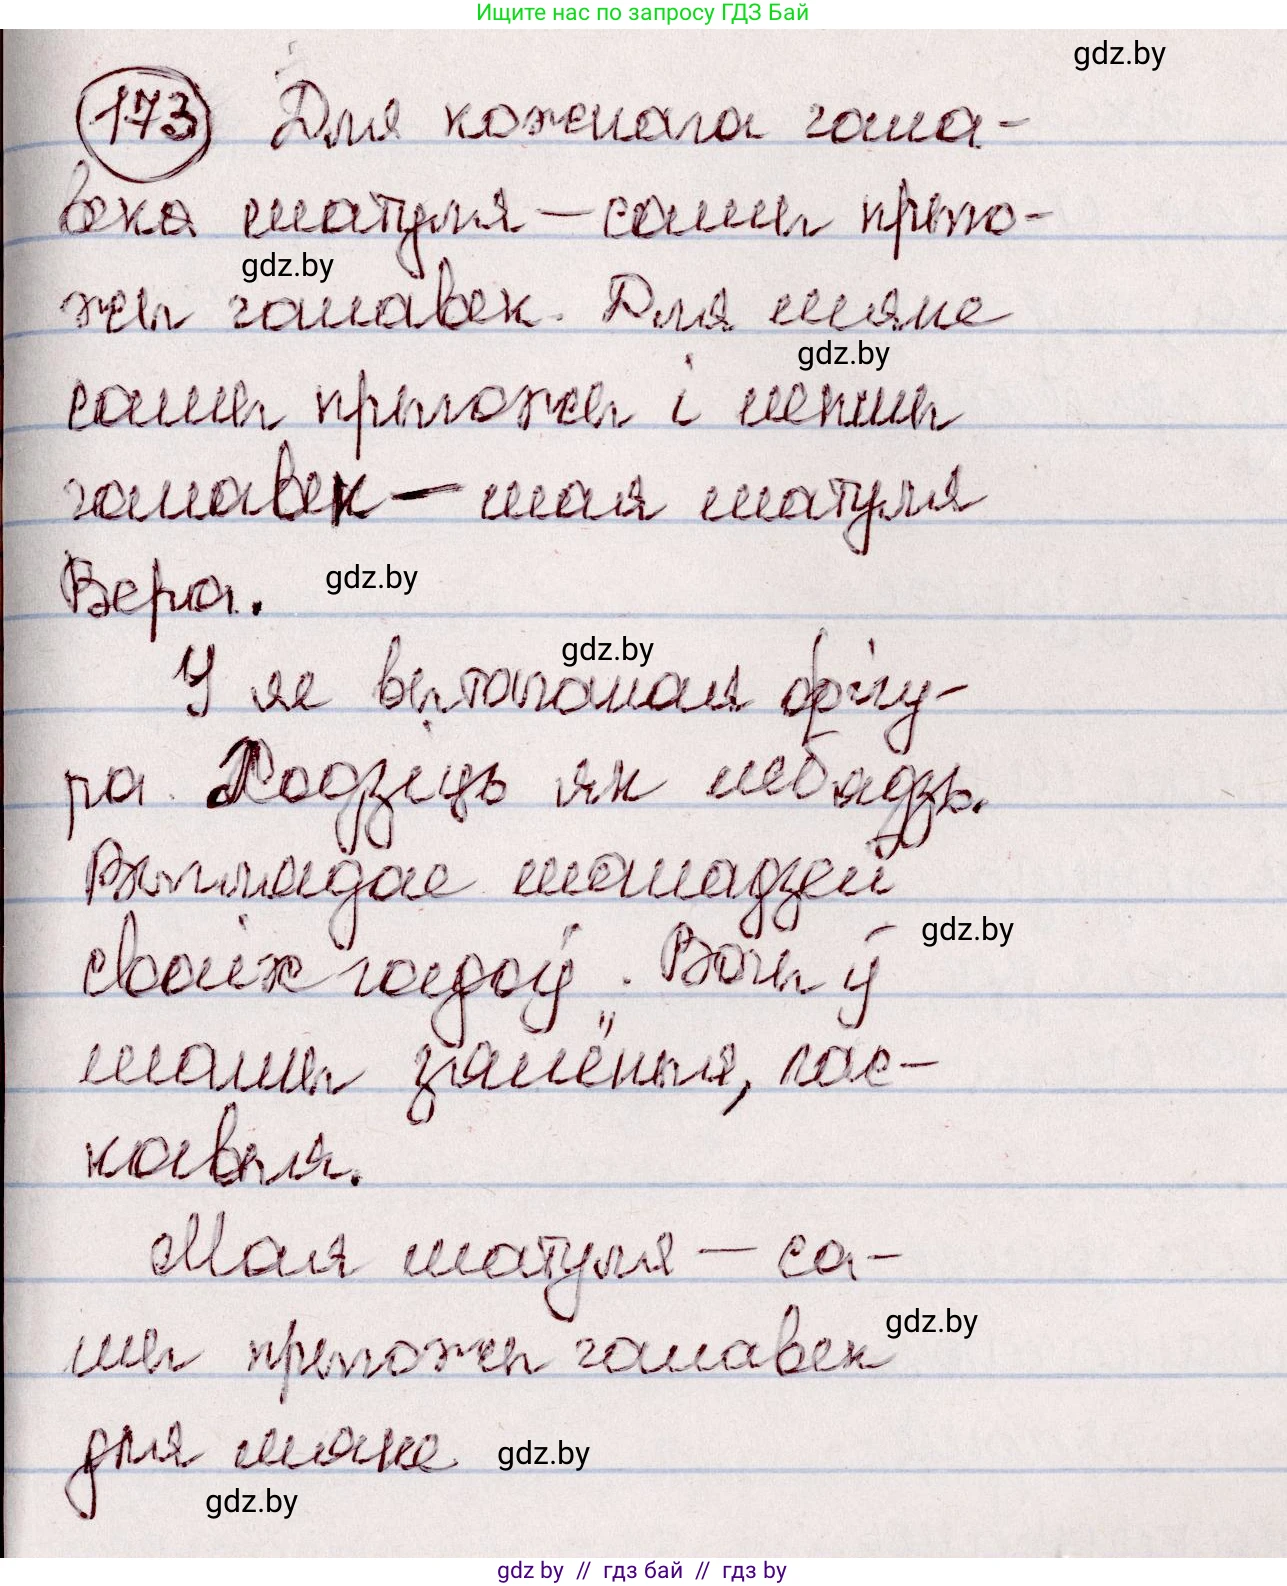 Ищите нас по запросу ГДЗ Бай
gdz.by
173 Для кожнага чала-
века матуля — самы прыго-
gdz.by
жы чалавек. Для мяне
gdz.by
самы прыгожы і мілы
чалавек — мая матуля
Вера.
gdz.by
gdz.by
У яе вытанчаная фігу-
ра. Ходзіць як лебядзь.
Выглядае маладзей
сваіх гадоў. Вочы ў
gdz.by
мамы зялёныя, лас-
кавыя.
Мая матуля — са-
мы прыгожы чалавек
gdz.by
для мяне
gdz.by
gdz.by
gdz by // гдз бай // гдз by